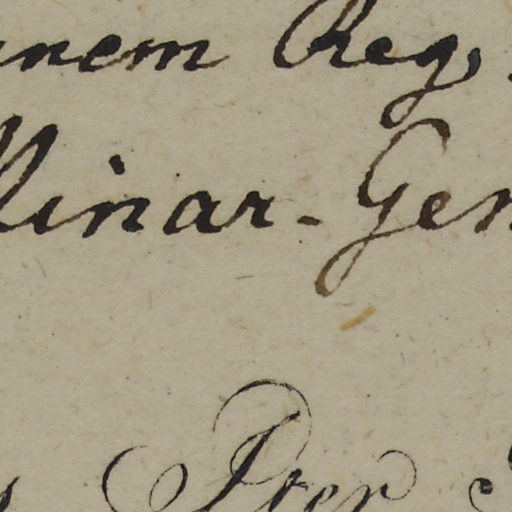 nem Reg.
linar-Gen
Pter